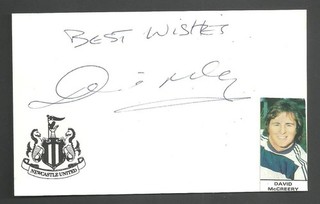 BEST WISHES
NEWCASTLE UNITED
DAVID
McCREERY